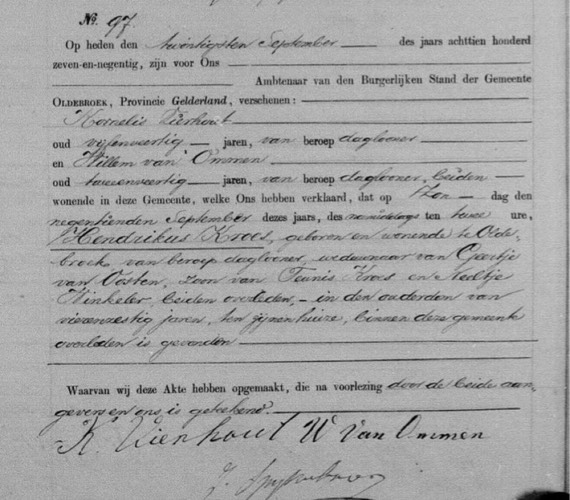 No. 97.
Op heden den twintigsten September des jaars achttien honderd
zeven-en-negentig, zijn voor Ons
Ambtenaar van den Burgerlijken Stand der Gemeente
OLDEBROEK, Provincie Gelderland, verschenen:
Kornelis Vierhout
oud vijfenveertig jaren, van beroep daglooner
en Willem van Ommen
oud tweeenveertig jaren, van beroep daglooner, beiden
wonende in deze Gemeente, welke Ons hebben verklaard, dat op Zon dag den
negentienden September dezes jaars, des namiddags ten twee ure,
Hendrikus Kroes, geboren en wonende te Olde-
broek van beroep daglooner, weduwnaar van Geertje
van Oosten, zoon van Teunis Kroes en Aeltje
Winkeler, beiden overleden, - in den ouderdom van
vierenzestig jaren, ten zijnen huize, binnen deze gemeente
overleden is gevonden
Waarvan wij deze Akte hebben opgemaakt, die na voorlezing door de beide aan-
gevers en ons is geteekend.
K. Vierhout W van Ommen